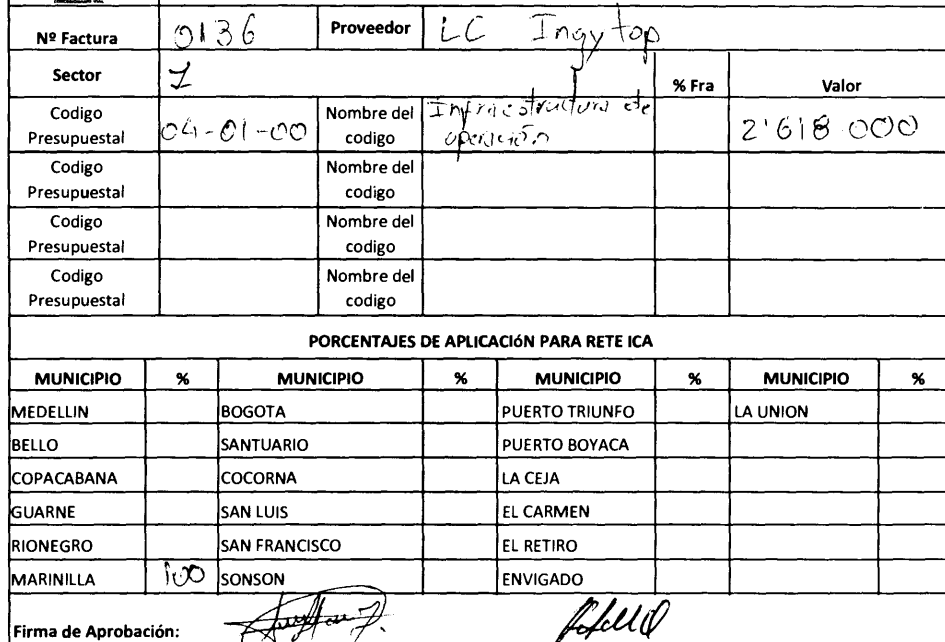 Nº Factura 0136 Proveedor LC Ingytop
Sector 1 % Fra Valor
Codigo Presupuestal 04-01-00 Nombre del codigo Infraestructura de operación 2'618.000
Codigo Presupuestal Nombre del codigo
Codigo Presupuestal Nombre del codigo
Codigo Presupuestal Nombre del codigo
PORCENTAJES DE APLICACIÓN PARA RETE ICA
MUNICIPIO % MUNICIPIO % MUNICIPIO % MUNICIPIO %
MEDELLIN BOGOTA PUERTO TRIUNFO LA UNION
BELLO SANTUARIO PUERTO BOYACA
COPACABANA COCORNA LA CEJA
GUARNE SAN LUIS EL CARMEN
RIONEGRO SAN FRANCISCO EL RETIRO
MARINILLA 100 SONSON ENVIGADO
Firma de Aprobación: